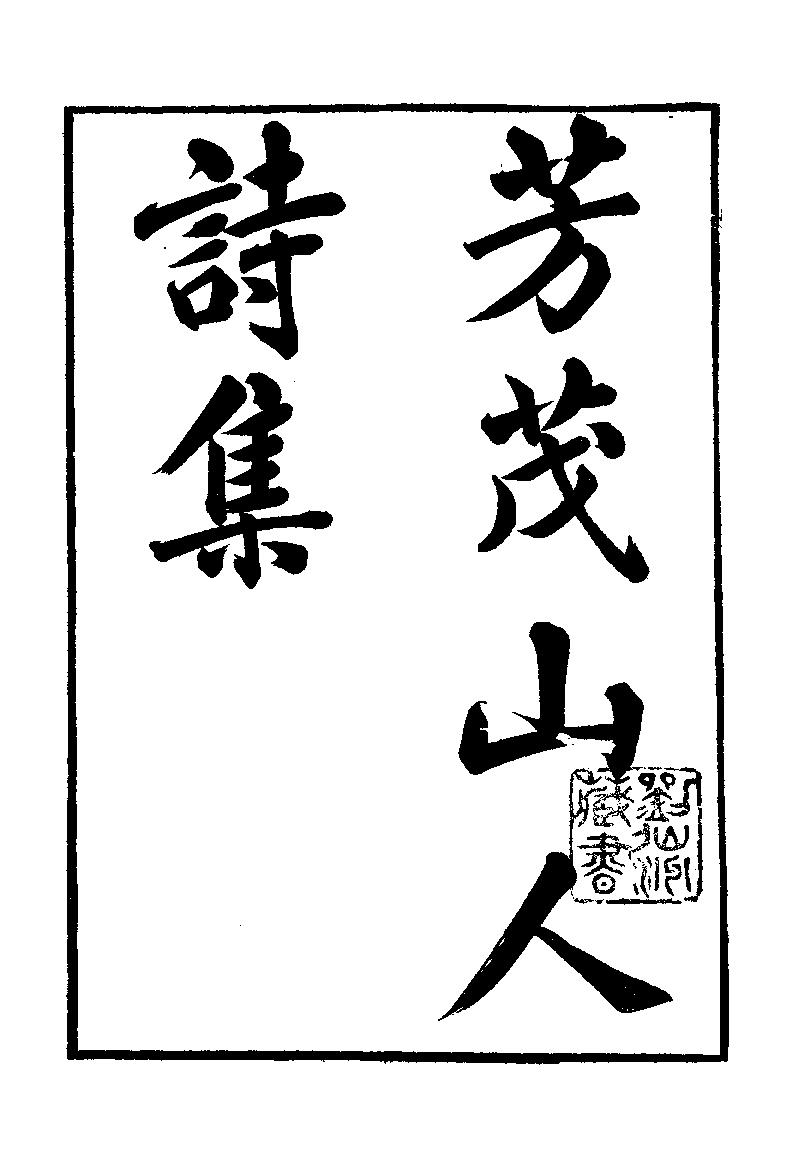 芳茂山人
詩集
藏書